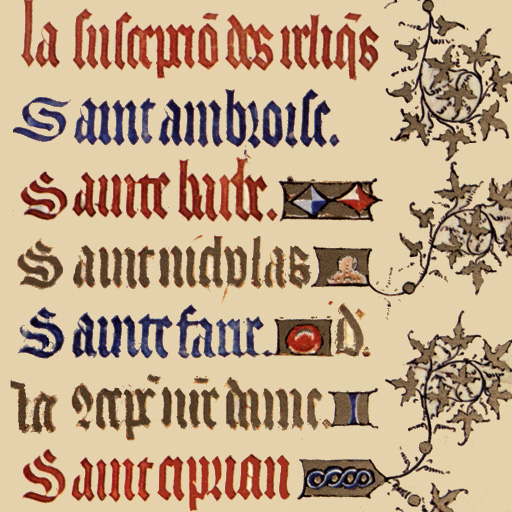 la suscepciõ des reliq̃s
Saint ambroise.
Sainte barbe.
Saint nicholas
Sainte fare. id'.
la ꝯcepc̃ nr̃e dame.
Saint ciprian